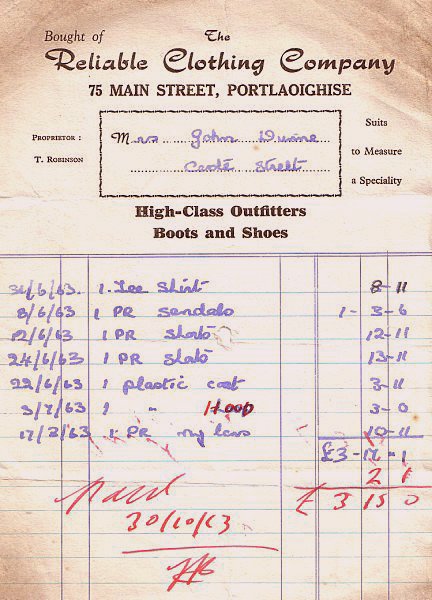 Bought of The
Reliable Clothing Company
75 MAIN STREET, PORTLAOIGHISE
PROPRIETOR :
T. ROBINSON
Mrs John Dunne
Castle Street
Suits
to Measure
a Speciality
High-Class Outfitters
Boots and Shoes
/6/63. 1 Tee Shirt 8-11
8/6/63 1 PR sandals 1-3-6
12/6/63 1 PR 12-11
24/6/63 1 PR 13-11
22/6/63 1 plastic coat 3-11
3/7/63 1 " Hood 3-0
17/ /63 1 PR nylons 10-11
£3-17-1
2 1
£ 3 15 0
Paid
30/10/63